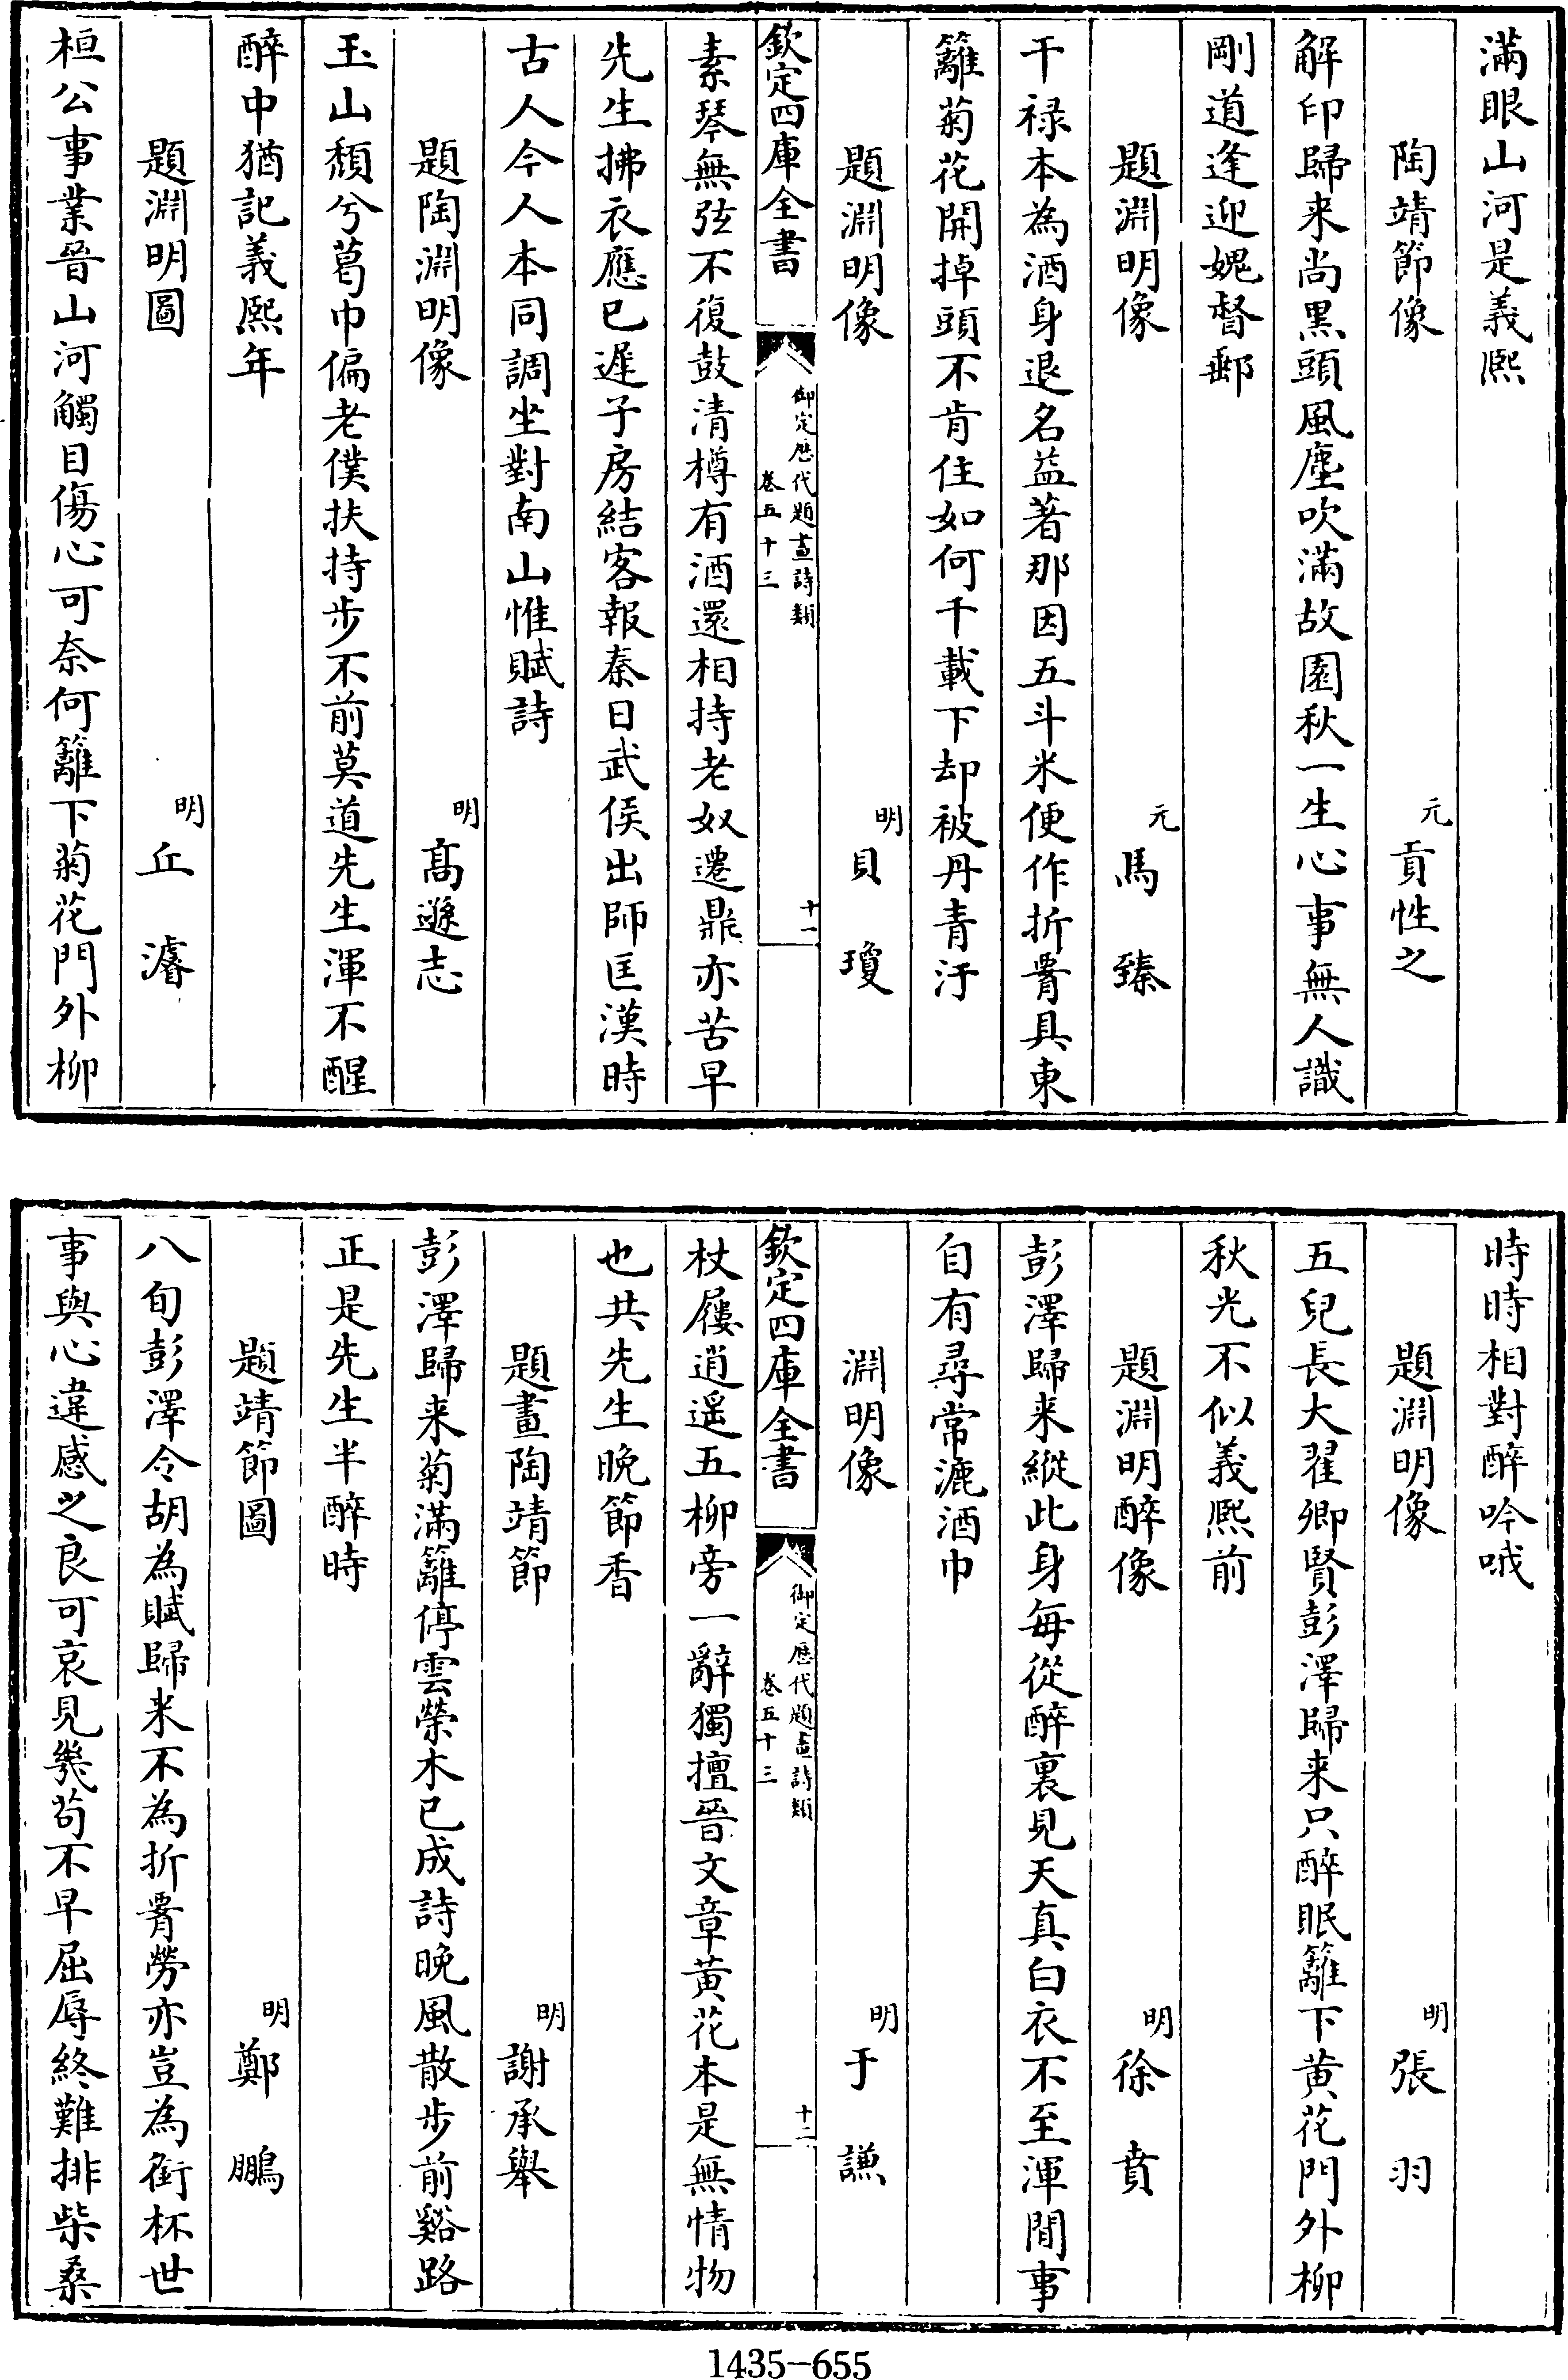 滿眼山河是義熙
陶靖節像
元
貢性之
解印歸来尚黑頭風塵吹滿故園秋一生心事無人識
剛道逢迎媿督郵
題淵明像
元
馬臻
干禄本為酒身退名益著那因五斗米便作折腎具東
籬菊花開掉頭不肯住如何千載下却被丹青汙
題淵明像
明
貝瓊
欽定四庫全書
御定歴代題畫詩類
卷五十三
十一
素琴無弦不復鼓清樽有酒還相持老奴遷鼎亦苦早
先生拂衣應已遲子房結客報秦日武侯出師匡漢時
古人今人本同調坐對南山惟賦詩
題陶淵明像
明
髙遜志
玉山頹兮葛巾偏老僕扶持步不前莫道先生渾不醒
醉中猶記義熙年
題淵明圖
明
丘濬
桓公事業晉山河觸目傷心可奈何籬下菊花門外柳
時時相對醉吟哦
題淵明像
明
張羽
五兒長大翟卿賢彭澤歸来只醉眠籬下黄花門外柳
秋光不似義熙前
題淵明醉像
明
徐賁
彭澤歸来縱此身每從醉裏見天真白衣不至渾閒事
自有尋常漉酒巾
淵明像
明
于謙
欽定四庫全書
御定歴代題畫詩類
卷五十三
十二
杖屨逍遥五柳旁一辭獨擅晉文章黄花本是無情物
也共先生晩節香
題畫陶靖節
明
謝承舉
彭澤歸来菊滿籬停雲榮木已成詩晚風散步前谿路
正是先生半醉時
題靖節圖
明
鄭鵬
八旬彭澤令胡為賦歸来不為折腎勞亦豈為銜杯世
事與心違感之良可哀見幾茍不早屈辱終難排柴桑
1435-655